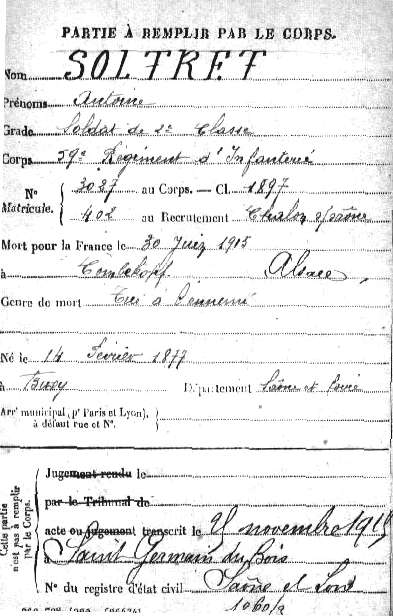 PARTIE À REMPLIR PAR LE CORPS.
Nom SOLTRET
Prénoms Antoine
Grade Soldat de 2e Classe
Corps 59e Régiment d'Infanterie
N° Matricule. 3027 au Corps. — Cl. 1897
402 au Recrutement Chalon s/Saône
Mort pour la France le 30 Juin 1915
à Alsace
Genre de mort Tué à l'ennemi
Né le 14 Février 1877
à Département Saône et Loire
Arr' municipal (p' Paris et Lyon),
à défaut rue et N°.
Cette partie n'est pas à remplir par le Corps.
Jugement rendu le
par le Tribunal de
acte ou jugement transcrit le 21 novembre 1915
à Saint Germain du Bois
N° du registre d'état civil Saône et Loire